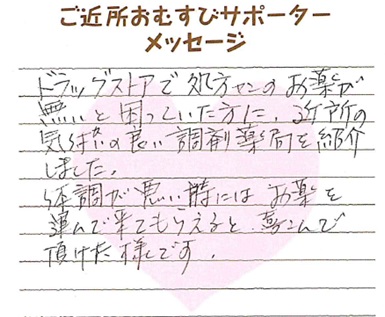 ご近所おむすびサポーター
メッセージ
ドラッグストアで処方センのお薬が
無いと困っていた方に、近所の
気持の良い調剤薬局を紹介
しました。
体調が悪い時にはお薬を
運んで来てもらえると喜こんで
頂けた様です。